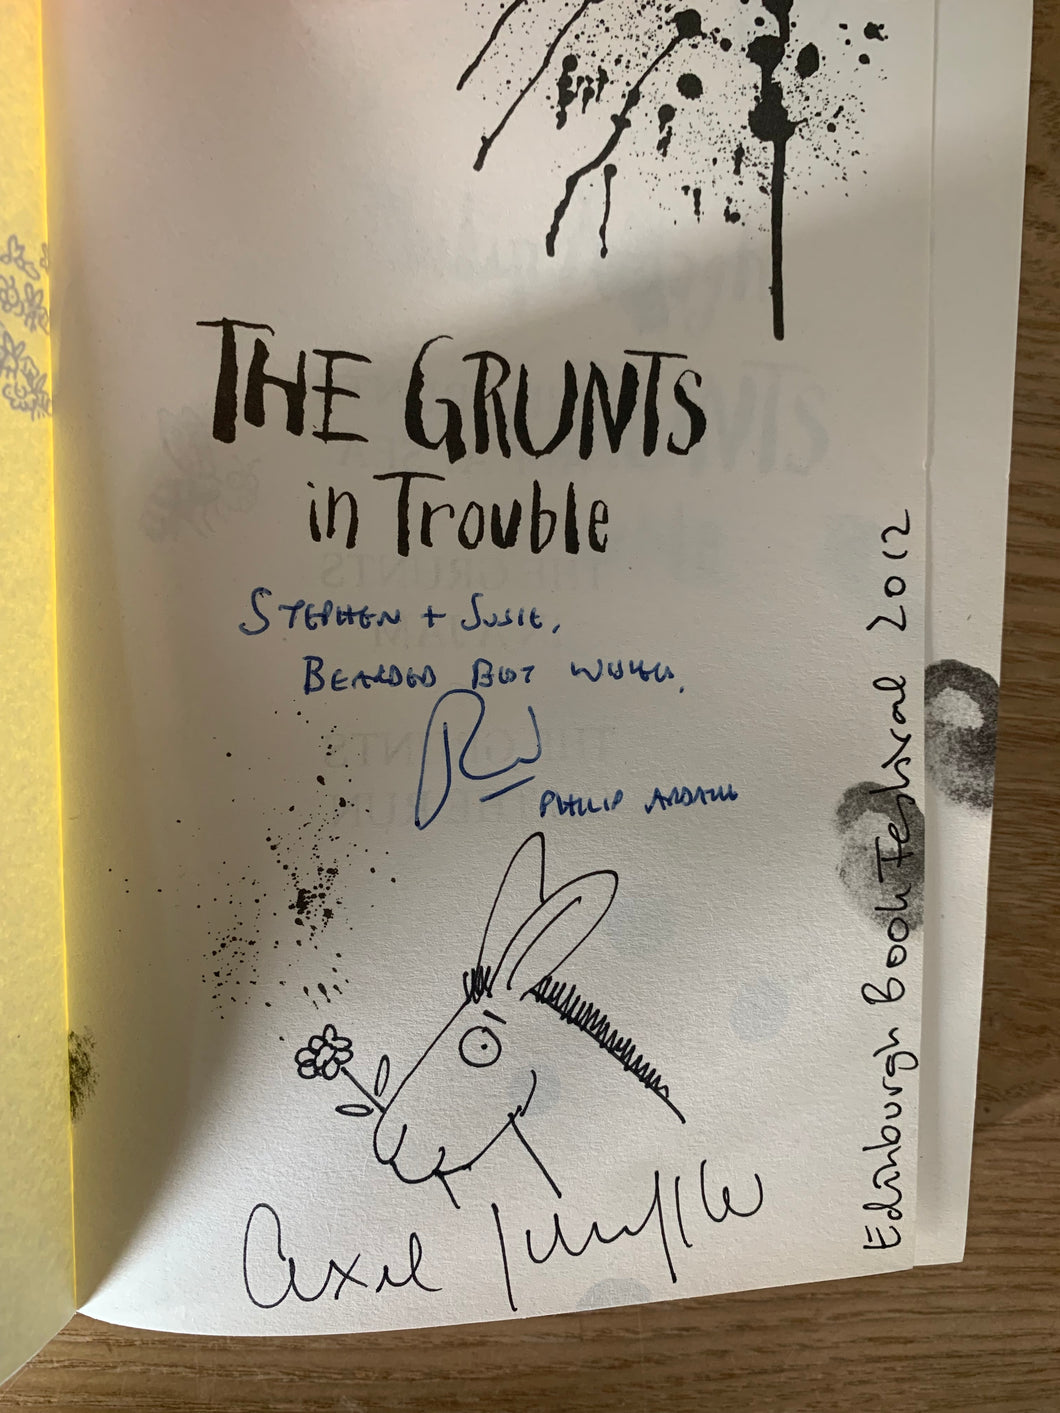 THE GRUNTS
in Trouble
STEPHEN + SUSIE,
BEARDED BEST WISHES,
PHILIP ARDAGH
Axel Scheffler
Edinburgh Book Festival 2012